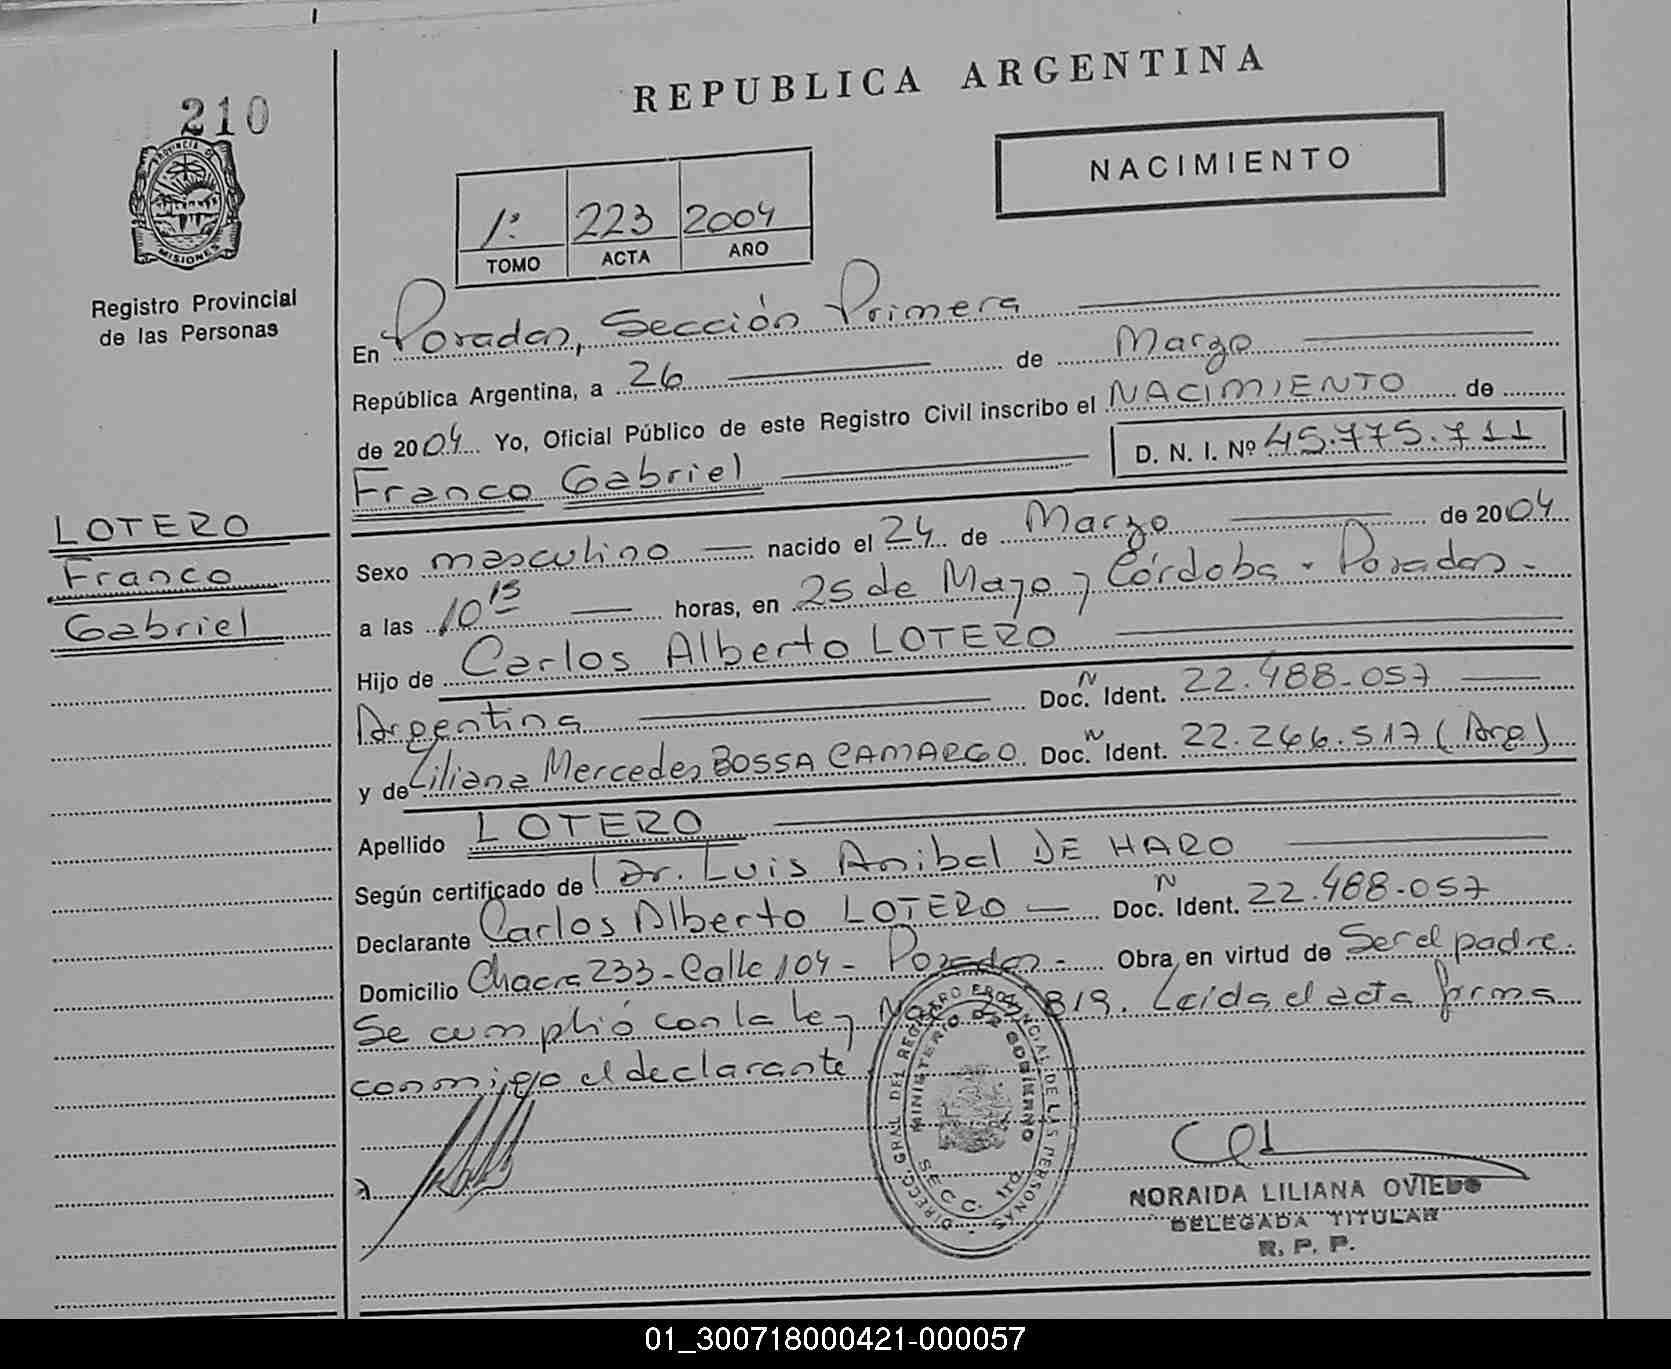 REPUBLICA ARGENTINA
210
PROVINCIA DE
MISIONES
Registro Provincial
de las Personas
NACIMIENTO
1º 223 2004
TOMO ACTA AÑO
En Posadas, Sección Primera
República Argentina, a 26 de Marzo
de 2004 Yo, Oficial Público de este Registro Civil inscribo el NACIMIENTO de
Franco Gabriel D. N. I. Nº 45.775.711
LOTERO
Franco
Gabriel
Sexo masculino nacido el 24 de Marzo de 2004
a las 10 13 horas, en 25 de Mayo y Córdoba - Posadas -
Hijo de Carlos Alberto LOTERO
Argentina Doc. N Ident. 22.488.057
y de Liliana Mercedes BOSSA CAMARGO Doc. N Ident. 22.266.517 (Arg)
Apellido LOTERO
Según certificado de Dr. Luis Anibal DE HARO
Declarante Carlos Alberto LOTERO Doc. N Ident. 22.488.057
Domicilio Chacra 233 - Calle 104 - Posadas - Obra en virtud de Ser el padre.
Se cumplió con la ley 819. Leída el acta firma
conmigo el declarante
DIRECC. GRAL. DEL REGISTRO PROVINCIAL DE LAS PERSONAS
MINISTERIO DE GOBIERNO
SECC. 1ra.
NORAIDA LILIANA OVIEDO
DELEGADA TITULAR
R. P. P.
01_300718000421-000057